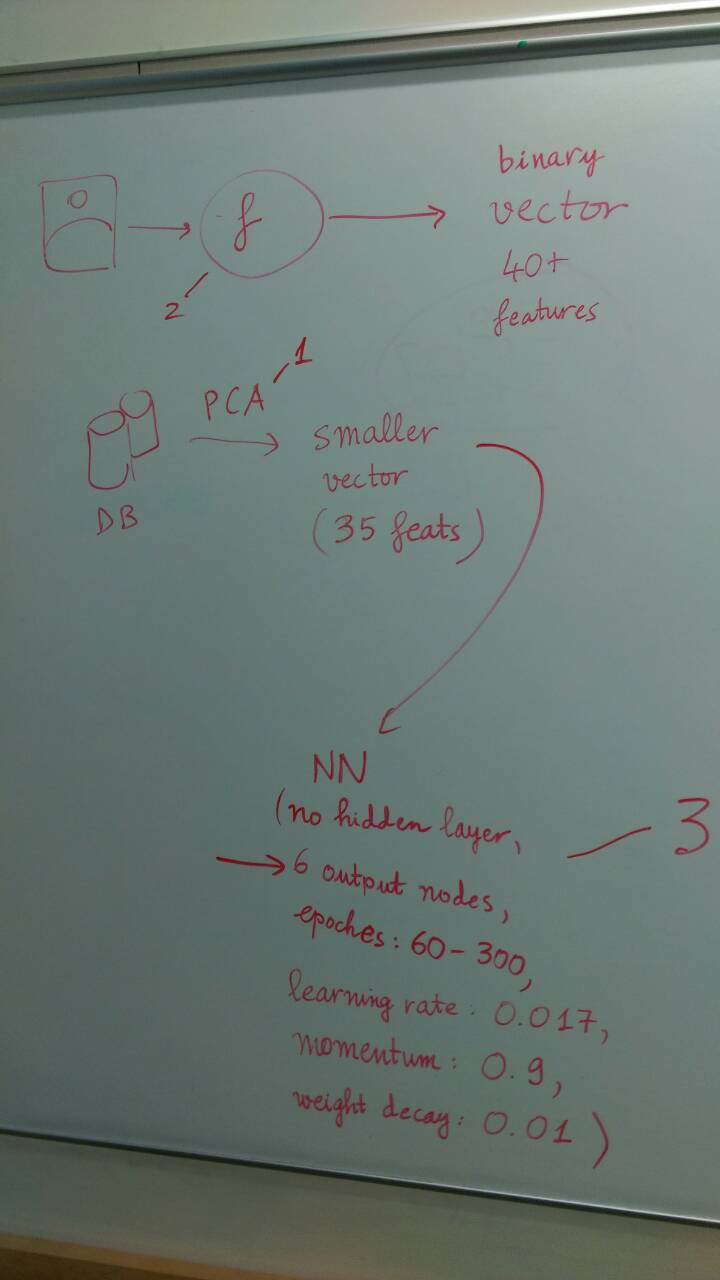 binary
f
vector
40+
2
features
1
PCA
smaller
vector
DB
(35 feats)
NN
(no hidden layer,
3
6 output nodes,
epoches: 60-300,
learning rate: 0.017,
momentum: 0.9,
weight decay: 0.01)